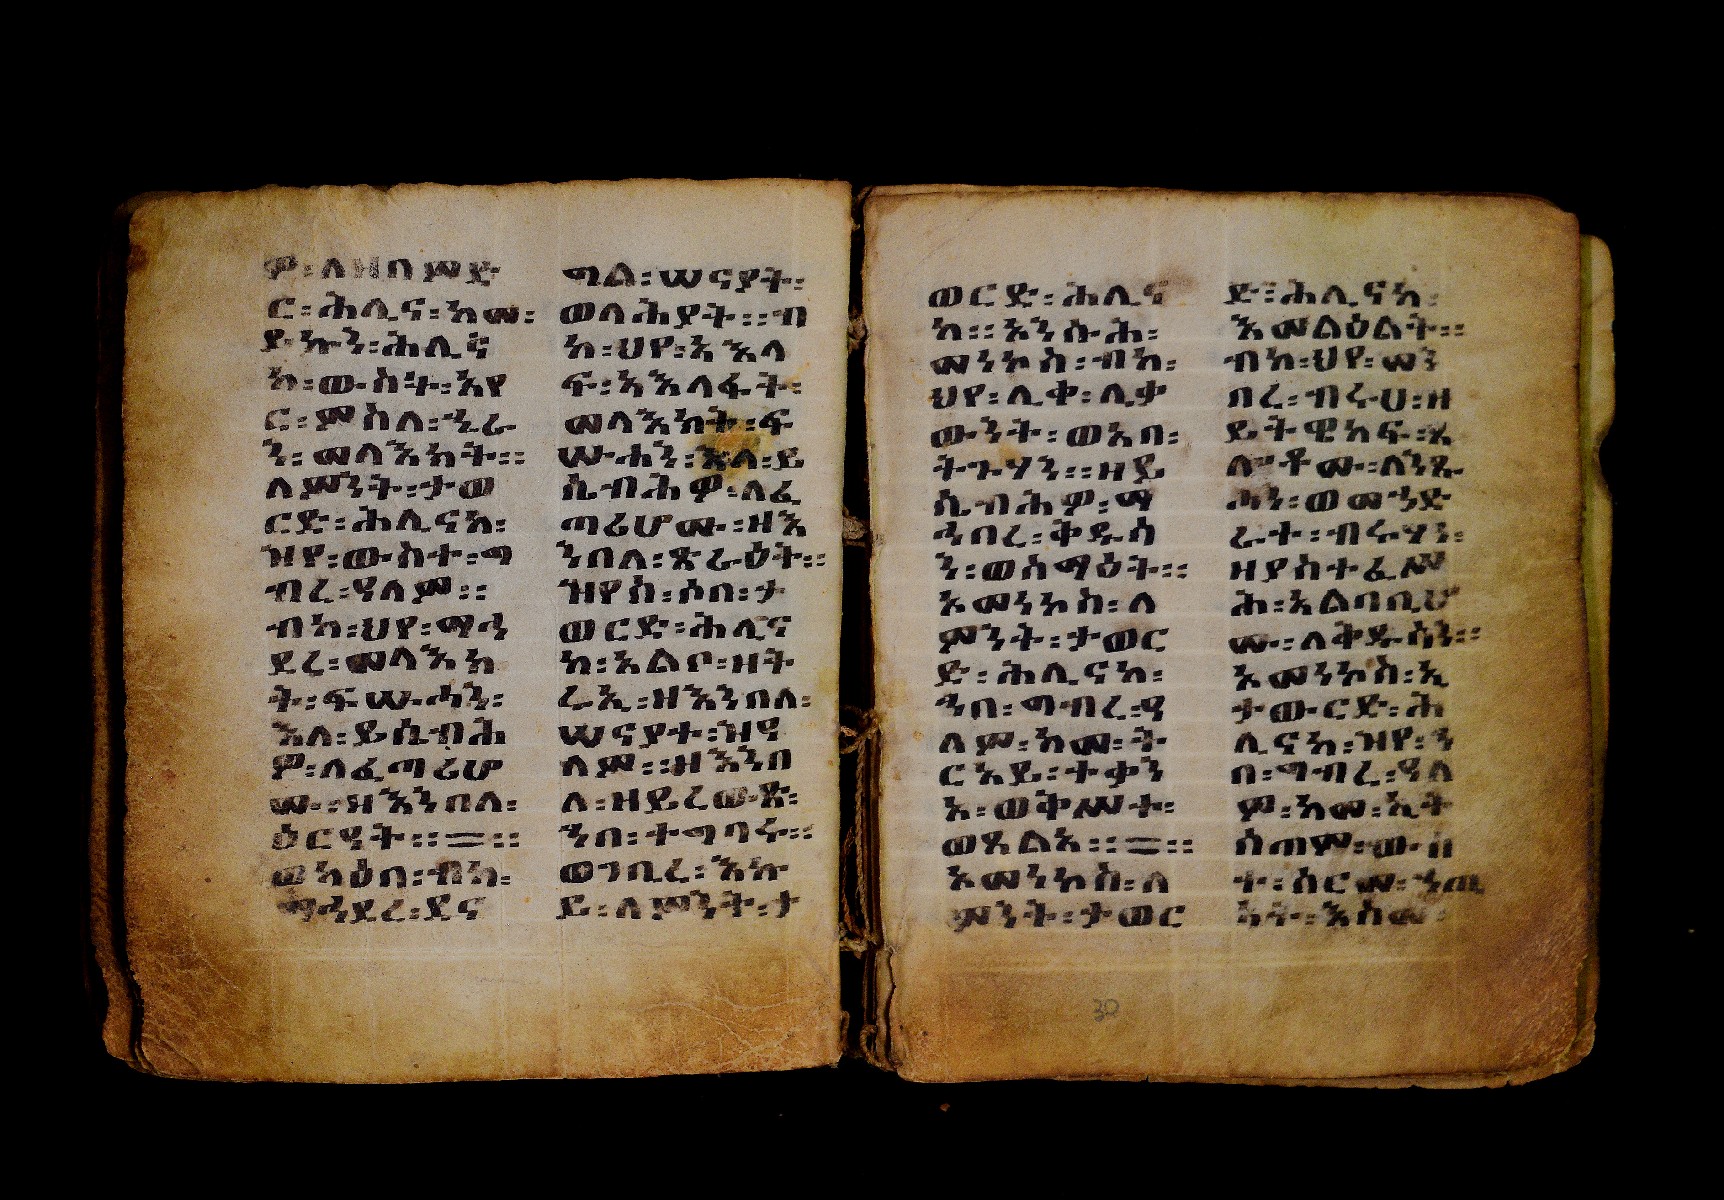 ም፡ለዘበምድ
ር፡ሕሊና፡ከመ፡
ይኩን፡ሕሊና
ከ፡ውስተ፡አየ
ር፡ምስለ፡ኄራ
ን፡መላእክት፡፡
ለምንት፡ታወ
ርድ፡ሕሊናከ፡
ዝየ፡ውስተ፡ማ
ብረ፡ዓለም፡፡
ብከ፡ህየ፡ማኅ
ደረ፡መላእክ
ት፡ፍሡሓን፡
እለ፡ይሴብሕ
ዎ፡ለፈጣሪሆ
ሙ፡ዘእንበለ፡
ዕርየት፡፡=፡፡
ወካዕበ፡ብከ፡
ማኅደረ፡ደና
ግል፡ሠናያት፡
ወላሕያት፡፡ብ
ከ፡ህየ፡አእላ
ፍ፡አእላፋት፡
መላእክት፡ፍ
ሡሓን፡እለ፡ይ
ሴብሕዎ፡ለፈ
ጣሪሆሙ፡ዘእ
ንበለ፡ጽራዕት፡፡
ዝየሰ፡ሶበ፡ታ
ወርድ፡ሕሊና
ከ፡አልቦ፡ዘት
ሬኢ፡ዘእንበለ፡
ሠናያተ፡ዝዓ
ለም፡፡ዘእንበ
ለ፡ዘይረውጽ፡
ኀበ፡ተግባሩ፡፡
ወገቢረ፡እኩ
ይ፡ለምንት፡ታ
ወርድ፡ሕሊና
ከ፡፡አንሱሕ፡
መነኮስ፡ብከ፡
ህየ፡ሊቀ፡ሊቃ
ውንት፡ወአበ፡
ትጉሃን፡፡ዘይ
ሴብሕዎ፡ማ
ኅበረ፡ቅዱሳ
ን፡ወሰማዕት፡፡
አመነኮስ፡ለ
ምንት፡ታወር
ድ፡ሕሊናከ፡
ኀበ፡ማብረ፡ዓ
ለም፡ከመ፡ት
ርአይ፡ተቃን
አ፡ወቅሥተ፡
ወጸልአ፡፡=፡፡
እመነኮስ፡ለ
ምንት፡ታወር
ድ፡ሕሊናከ፡
እመልዕልት፡፡
ብከ፡ህየ፡መን
በረ፡ብሩህ፡ዘ
ይትዌከፍ፡ጸ
ሎቶሙ፡ለንጹ
ሓን፡ወመኀድ
ራተ፡ብሩሃን፡
ዘያስተፈሥ
ሕ፡አልባቢሆ
ሙ፡ለቅዱሳን፡፡
እመነኮስ፡ኢ
ታውርድ፡ሕ
ሊናከ፡ዝየ፡ኀ
በ፡ማብረ፡ዓለ
ም፡ከመ፡ኢት
ሰጠም፡ውስ
ተ፡ሰርመ፡ኃጢ
አት፡እስመ፡
30